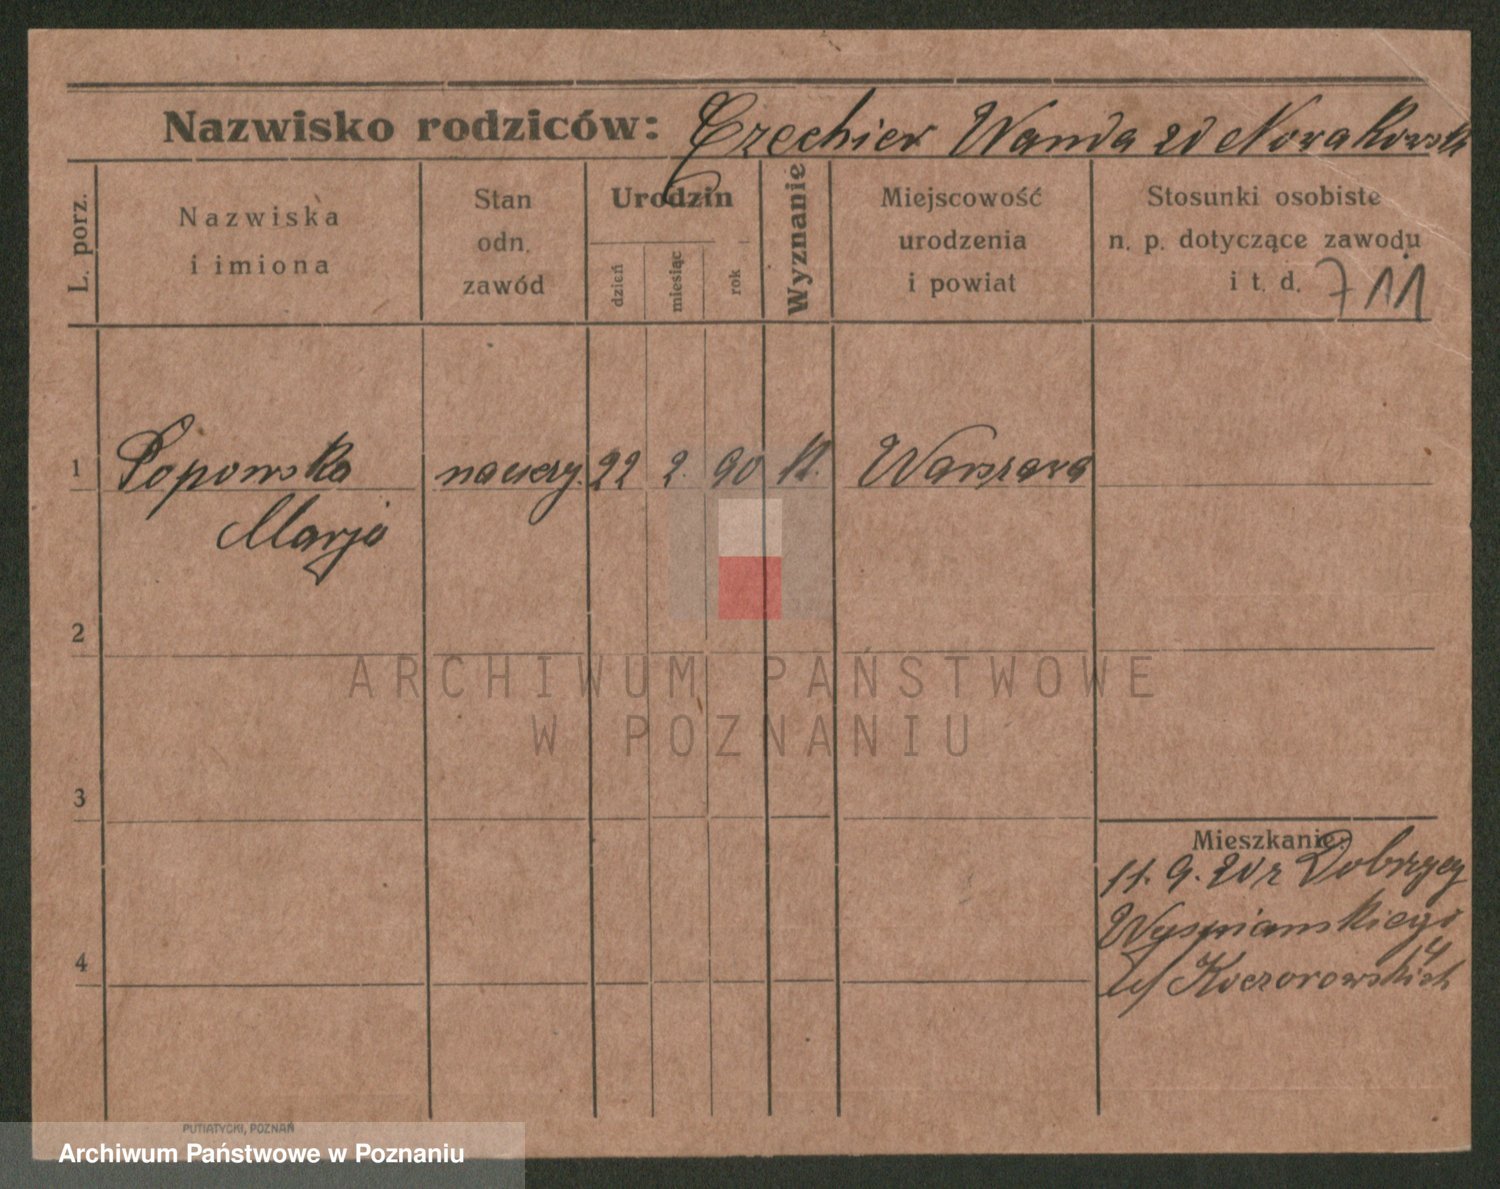 Nazwisko rodziców: Czechier Wanda zd Nowakowsk
L. porz.
Nazwiska
i imiona
Stan
odn.
zawód
Urodzin
dzień
miesiąc
rok
Wyznanie
Miejscowość
urodzenia
i powiat
Stosunki osobiste
n. p. dotyczące zawodu
i t. d. 711
1 Popowska nauczy. 22 2. 90 kt. Warszawa
Marja
2
3
4
Mieszkanie:
11. 9. 20 z Dobrzycy
Wyspianskiego
4
u/ Koczorowskich
PUTIATYCKI, POZNAŃ
ARCHIWUM PAŃSTWOWE
W POZNANIU
Archiwum Państwowe w Poznaniu